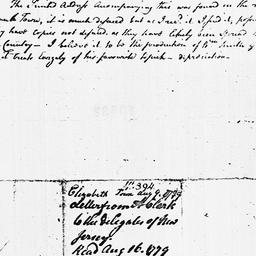 The Printed Address Accompanying this was found in the
Town, it is much defaced but as I have it I send it,
have Copies not defaced, as they have likely been Spread
Country — I believe it to be the production of Wm Smith
it treats largely of his favourite topick — depreciation —
No. 394
Elizabeth Town Aug 9. 1779
Letter from A Clark
to the delegates of New
Jersey.
Read Aug 16. 1779